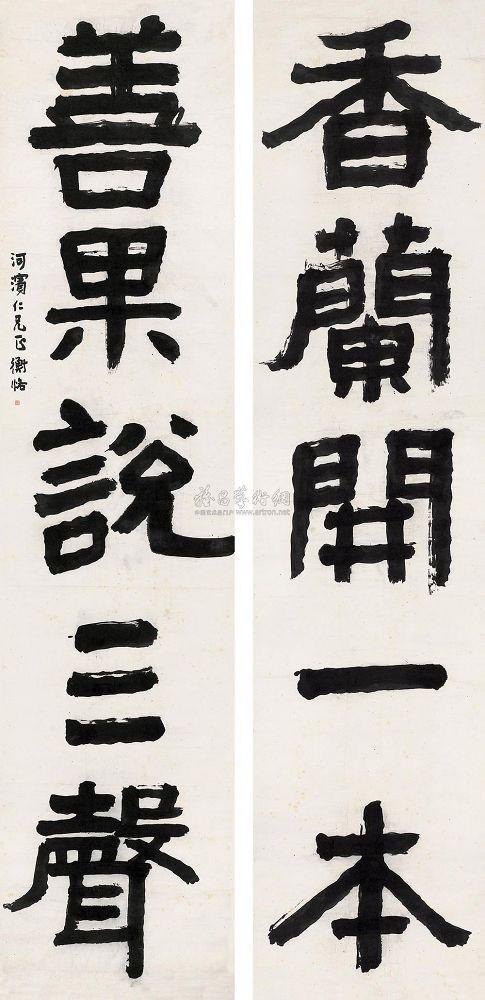 香蘭開一本
善果說三聲
河濱仁兄正 衡恪
雅昌藝術網
www.artron.net